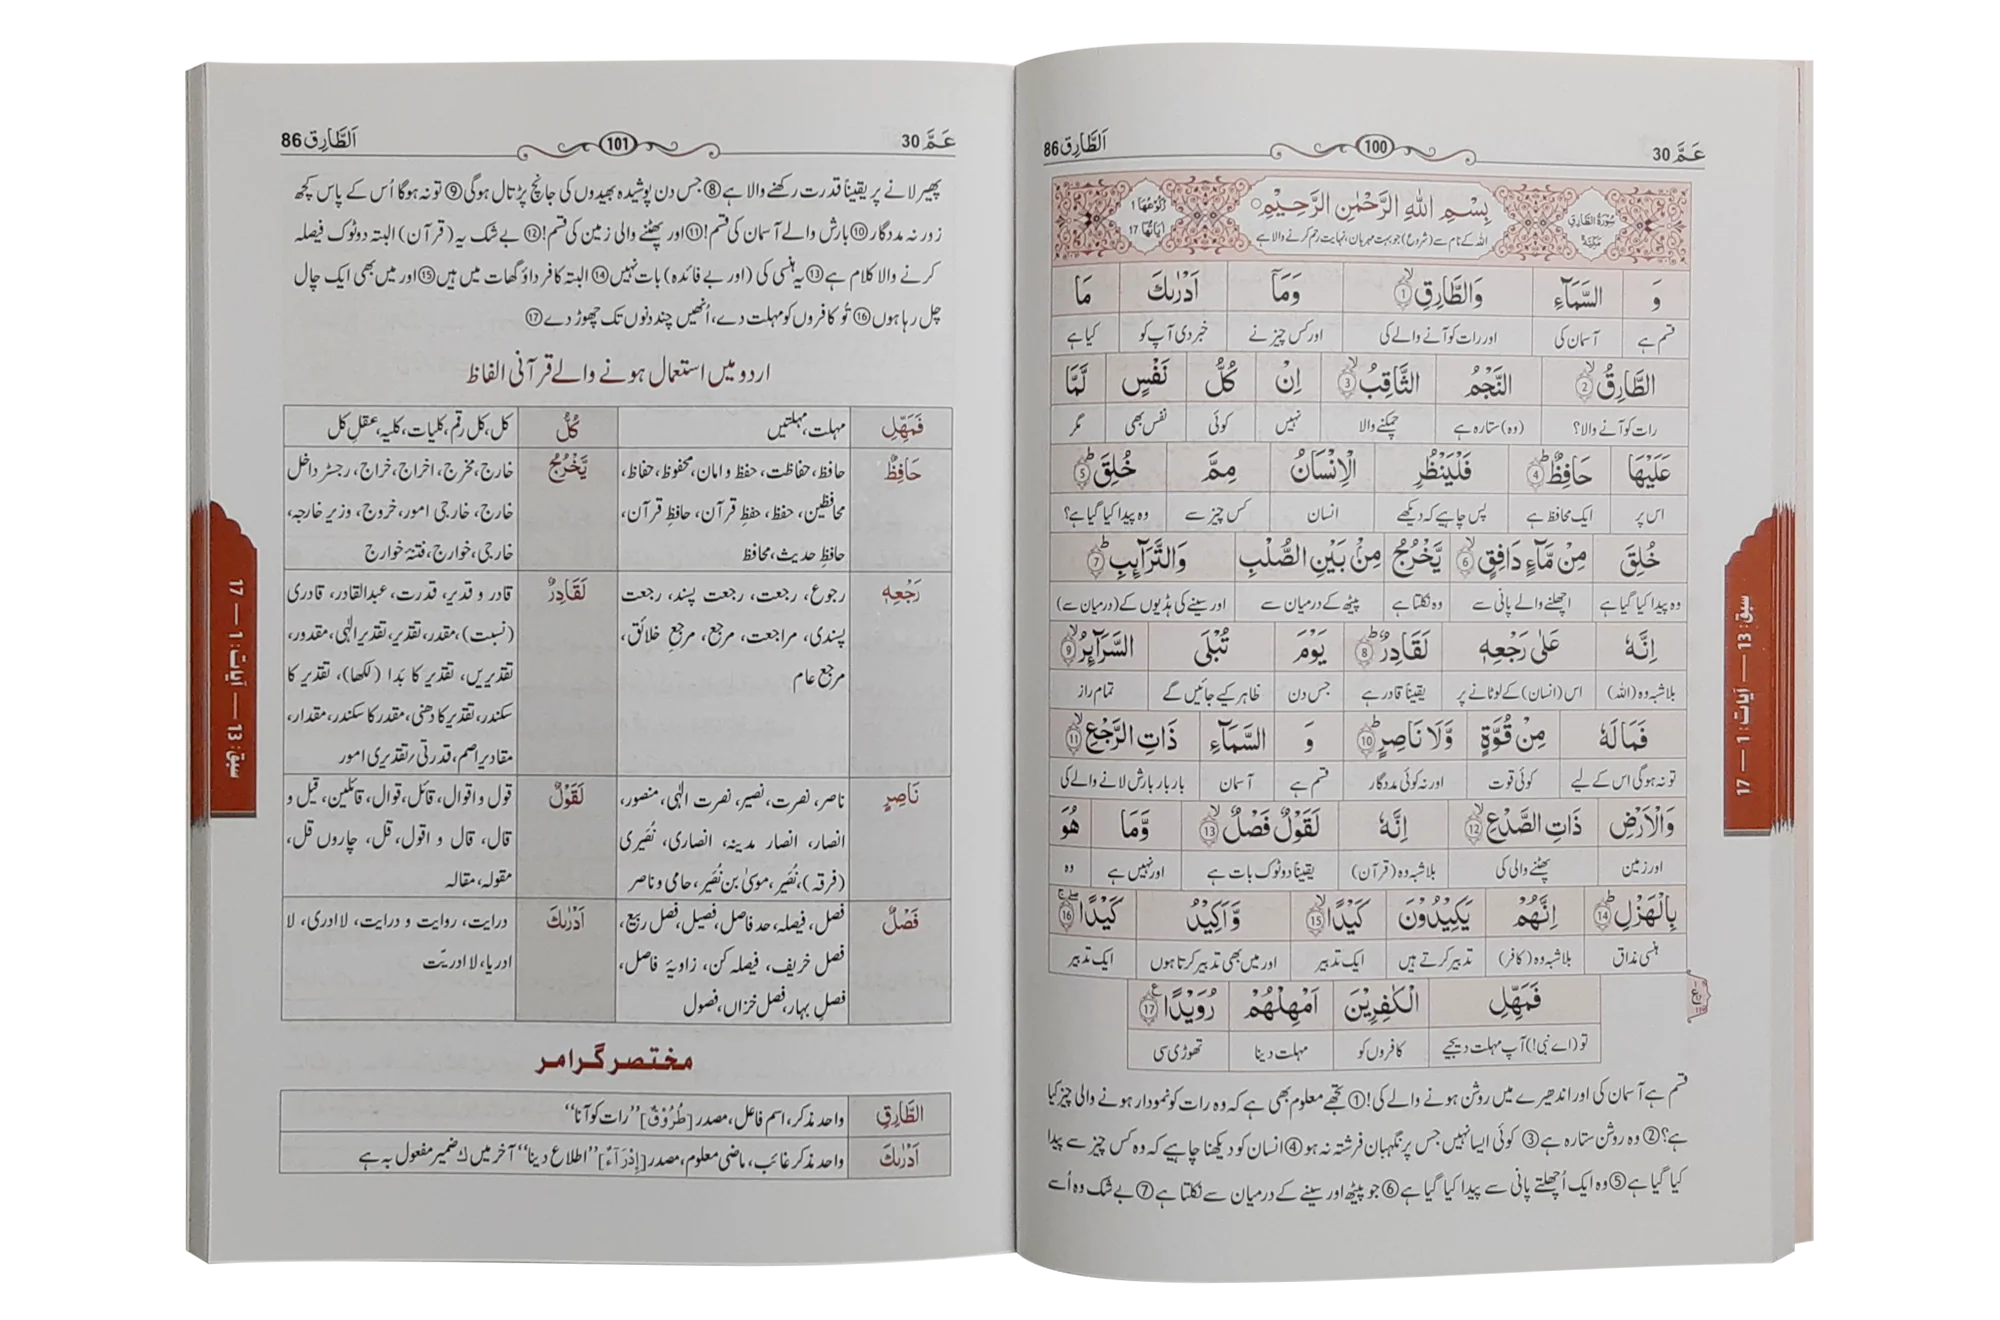 عَمَّ 30
100
اَلطَّارِق 86
سُورَةُ الطَّارِقِ مَكِّيَّةٌ
بِسْمِ اللّٰهِ الرَّحْمٰنِ الرَّحِيْمِ
اللہ کے نام سے (شروع) جو بہت مہربان، نہایت رحم کرنے والا ہے
رُكُوْعُهَا 1
اٰيَاتُهَا 17
وَ السَّمَآءِ وَالطَّارِقِ ۙ۱ وَمَآ اَدْرٰىكَ مَا
قسم ہے آسمان کی اور رات کو آنے والے کی اور کس چیز نے خبر دی آپ کو کیا ہے
الطَّارِقُ ۙ۲ النَّجْمُ الثَّاقِبُ ۙ۳ اِنْ كُلُّ نَفْسٍ لَّمَّا
رات کو آنے والا؟ (وہ) ستارہ ہے چمکنے والا نہیں کوئی نفس بھی مگر
عَلَيْهَا حَافِظٌ ؕ۴ فَلْيَنْظُرِ الْاِنْسَانُ مِمَّ خُلِقَ ؕ۵
اس پر ایک محافظ ہے پس چاہیے کہ دیکھے انسان کس چیز سے وہ پیدا کیا گیا ہے؟
خُلِقَ مِنْ مَّآءٍ دَافِقٍ ۙ۶ يَّخْرُجُ مِنْۢ بَيْنِ الصُّلْبِ وَالتَّرَآئِبِ ؕ۷
وہ پیدا کیا گیا ہے اچھلنے والے پانی سے وہ نکلتا ہے پیٹھ کے درمیان سے اور سینے کی ہڈیوں کے (درمیان سے)
اِنَّهٗ عَلٰى رَجْعِهٖ لَقَادِرٌ ؕ۸ يَوْمَ تُبْلَى السَّرَآئِرُ ۙ۹
بلاشبہ وہ (اللہ) اس (انسان) کے لوٹانے پر یقیناً قادر ہے جس دن ظاہر کیے جائیں گے تمام راز
فَمَا لَهٗ مِنْ قُوَّةٍ وَّلَا نَاصِرٍ ؕ۱۰ وَ السَّمَآءِ ذَاتِ الرَّجْعِ ۙ۱۱
تو نہ ہوگی اس کے لیے کوئی قوت اور نہ کوئی مددگار قسم ہے آسمان بار بار بارش لانے والے کی
وَالْاَرْضِ ذَاتِ الصَّدْعِ ۙ۱۲ اِنَّهٗ لَقَوْلٌ فَصْلٌ ۙ۱۳ وَّمَا هُوَ
اور زمین پھٹنے والی کی بلاشبہ وہ (قرآن) یقیناً دوٹوک بات ہے اور نہیں ہے وہ
بِالْهَزْلِ ؕ۱۴ اِنَّهُمْ يَكِيْدُوْنَ كَيْدًا ۙ۱۵ وَّاَكِيْدُ كَيْدًا ۚ۱۶
ہنسی مذاق بلاشبہ وہ (کافر) تدبیر کرتے ہیں ایک تدبیر اور میں بھی تدبیر کرتا ہوں ایک تدبیر
فَمَهِّلِ الْكٰفِرِيْنَ اَمْهِلْهُمْ رُوَيْدًا ۱۷
تو (اے نبی!) آپ مہلت دیجیے کافروں کو مہلت دینا تھوڑی سی
قسم ہے آسمان کی اور اندھیرے میں روشن ہونے والے کی! ① تجھے معلوم بھی ہے کہ وہ رات کو نمودار ہونے والی چیز کیا
ہے؟ ② وہ روشن ستارہ ہے ③ کوئی ایسا نہیں جس پر نگہبان فرشتہ نہ ہو ④ انسان کو دیکھنا چاہیے کہ وہ کس چیز سے پیدا
کیا گیا ہے ⑤ وہ ایک اُچھلتے پانی سے پیدا کیا گیا ہے ⑥ جو پیٹھ اور سینے کے درمیان سے نکلتا ہے ⑦ بے شک وہ اُسے
سبق: 13 — آیات: 1 — 17
عَمَّ 30
101
اَلطَّارِق 86
پھیر لانے پر یقیناً قدرت رکھنے والا ہے ⑧ جس دن پوشیدہ بھیدوں کی جانچ پڑتال ہوگی ⑨ تو نہ ہوگا اُس کے پاس کچھ
زور نہ مددگار ⑩ بارش والے آسمان کی قسم! ⑪ اور پھٹنے والی زمین کی قسم! ⑫ بے شک یہ (قرآن) البتہ دوٹوک فیصلہ
کرنے والا کلام ہے ⑬ یہ ہنسی کی (اور بے فائدہ) بات نہیں ⑭ البتہ کافر داؤ گھات میں ہیں ⑮ اور میں بھی ایک چال
چل رہا ہوں ⑯ تُو کافروں کو مہلت دے، اُنھیں چند دنوں تک چھوڑ دے ⑰
اردو میں استعمال ہونے والے قرآنی الفاظ
فَمَهِّلِ مہلت، مہلتیں كُلُّ کل، کل رقم، کلیات، کلیہ، عقلِ کل
حَافِظٌ حافظ، حفاظت، حفظ و امان، محفوظ، حفاظ، يَّخْرُجُ خارج، مخرج، اخراج، خراج، رجسٹر داخل
محافظین، حفظ، حفظِ قرآن، حافظِ قرآن، خارج، خارجی امور، خروج، وزیر خارجہ،
حافظِ حدیث، محافظ خارجی، خوارج، فتنۂ خوارج
رَجْعِهٖ رجوع، رجعت، رجعت پسند، رجعت لَقَادِرٌ قادر و قدیر، قدرت، عبدالقادر، قادری
پسندی، مراجعت، مرجع، مرجع خلائق، (نسبت)، مقدر، تقدیر، تقدیرِ الٰہی، مقدور،
مرجع عام تقدیریں، تقدیر کا بَدا (لکھا)، تقدیر کا
سکندر، تقدیر کا دھنی، مقدر کا سکندر، مقدار،
مقادیر اصم، قدرتی؍ تقدیری امور
نَاصِرٍ ناصر، نصرت، نصیر، نصرت الٰہی، منصور، لَقَوْلٌ قول و اقوال، قائل، قوال، قائلین، قیل و
انصار، انصار مدینہ، انصاری، نُصَیری قال، قال و اقول، قل، چاروں قل،
(فرقہ)، نُصَیر، موسیٰ بن نُصَیر، حامی و ناصر مقولہ، مقالہ
فَصْلٌ فصل، فیصلہ، حد فاصل، فصیل، فصل ربیع، اَدْرٰىكَ درایت، روایت و درایت، لا ادری، لا
فصل خریف، فیصلہ کن، زاویۂ فاصل، ادریا، لا ادریّت
فصلِ بہار، فصل خزاں، فصول
مختصر گرامر
الطَّارِقِ واحد مذکر، اسم فاعل، مصدر [طُرُوْقٌ] ”رات کو آنا“
اَدْرٰىكَ واحد مذکر غائب، ماضی معلوم، مصدر [اِدْرَآءٌ] ”اطلاع دینا“ آخر میں ك ضمیر مفعول بہ ہے
سبق: 13 — آیات: 1 — 17